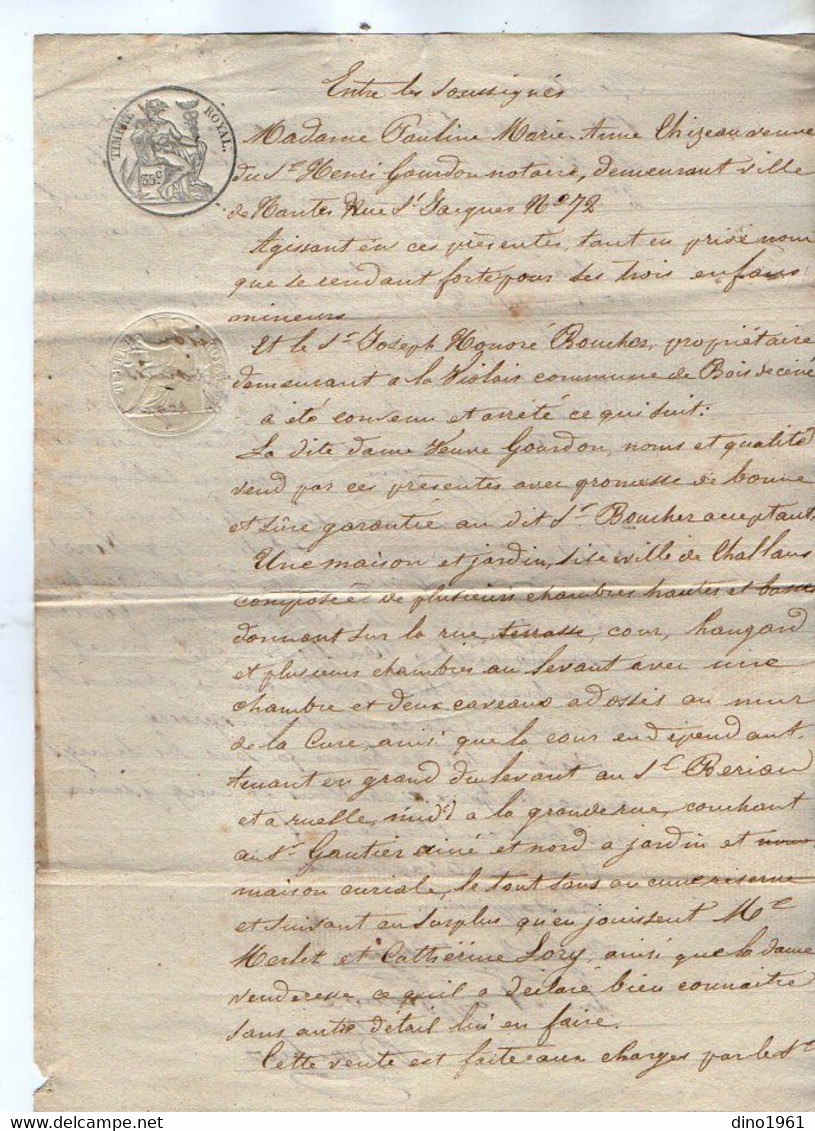 TIMBRE ROYAL.
35c
Entre les soussignés
Madame Pauline Marie Anne Chizeau veuve
du Sr Henri Gourdon notaire, demeurant ville
de Nantes Rue St Jacques No 72
Agissant en ces présentes, tant en privé nom
que se rendant forte pour ses trois enfans
mineurs
Et le Sr Joseph Honoré Boucher, propriétaire
demeurant a la Violais commune de Bois de céné
a été convenu et arrêté ce qui suit:
La dite dame Veuve Gourdon, noms et qualité
vend par ces présentes avec promesse de bonne
et sûre garantie au dit Sr Boucher acceptant.
Une maison et jardin, sise ville de Challans
composée de plusieurs chambres hautes et basses
donnant sur la rue, terrasse, cour, hangard
et plusieurs chambres au levant avec une
chambre et deux caveaux adossés au mur
de la Cure, ainsi que la cour en dépendant.
tenant en grand du levant au Sr Beriau
et a ruelle, midi a la grande rue, couchant
au Sr Gautier ainé et nord a jardin et
maison curiale, le tout sans aucune réserve
et suivant au surplus qu'en jouissent Me
Merlet et Cathérine Lory, ainsi que la dame
venderesse, ce qu'il a déclaré bien connaitre
sans autre détail lui en faire.
Cette vente est faite aux charges par le Sr
dino1961